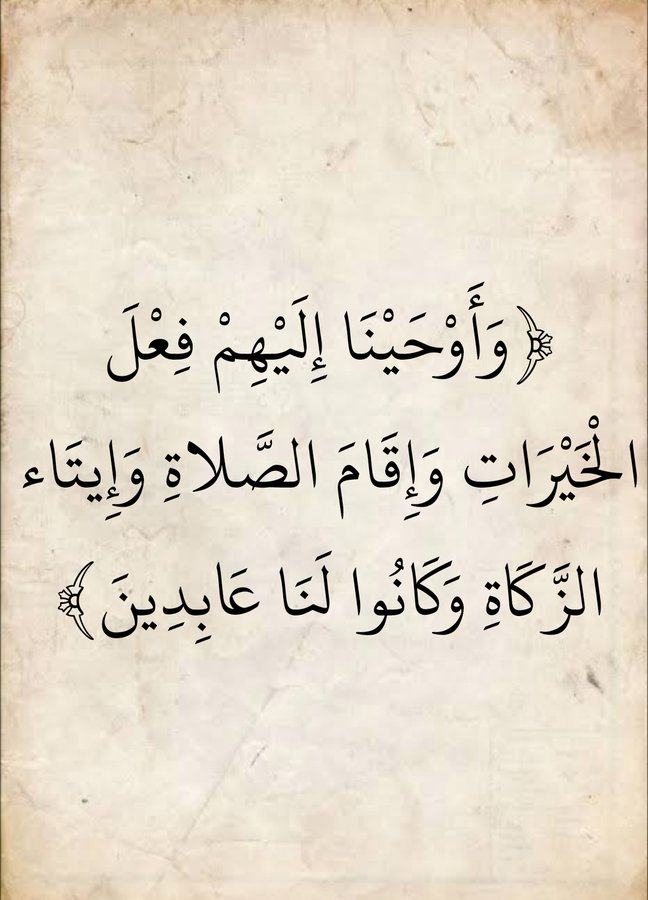 ﴿وَأَوْحَيْنَا إِلَيْهِمْ فِعْلَ
الْخَيْرَاتِ وَإِقَامَ الصَّلاةِ وَإِيتَاء
الزَّكَاةِ وَكَانُوا لَنَا عَابِدِينَ﴾